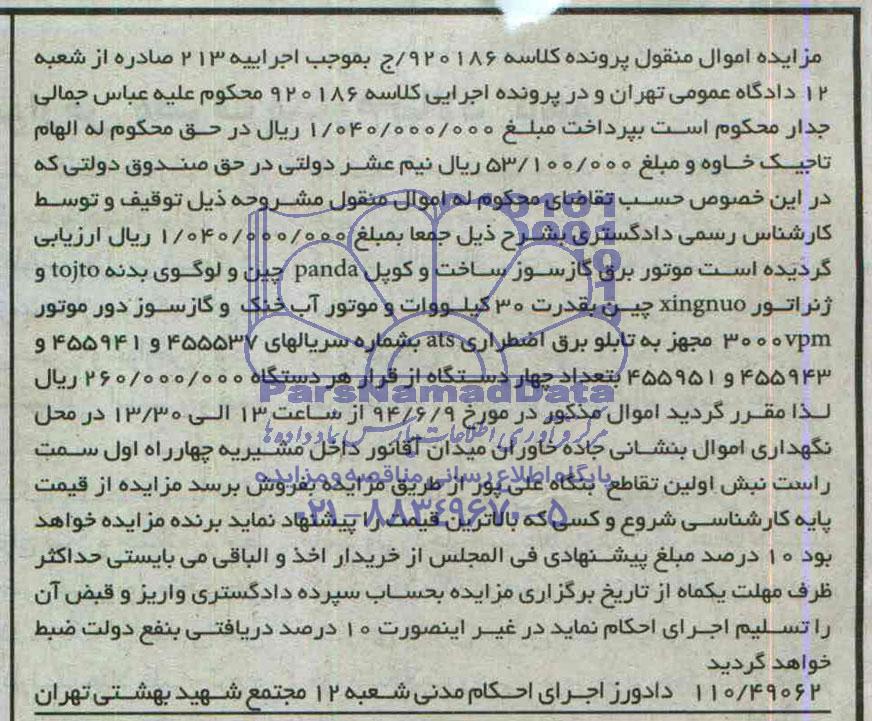 مزایده اموال منقول پرونده کلاسه ۹۲۰۱۸۶/ج بموجب اجراییه ۲۱۳ صادره از شعبه
۱۲ دادگاه عمومی تهران و در پرونده اجرایی کلاسه ۹۲۰۱۸۶ محکوم علیه عباس جمالی
جدار محکوم است بپرداخت مبلغ ۱/۰۴۰/۰۰۰/۰۰۰ ریال در حق محکوم له الهام
تاجیک خاوه و مبلغ ۵۳/۱۰۰/۰۰۰ ریال نیم عشر دولتی در حق صندوق دولتی که
در این خصوص حسب تقاضای محکوم له اموال منقول مشروحه ذیل توقیف و توسط
کارشناس رسمی دادگستری بشرح ذیل جمعا بمبلغ ۱/۰۴۰/۰۰۰/۰۰۰ ریال ارزیابی
گردیده است موتور برق گازسوز ساخت و کوپل panda چین و لوگوی بدنه tojto و
ژنراتور xingnuo چین بقدرت ۳۰ کیلووات و موتور آب خنک و گازسوز دور موتور
۳۰۰۰vpm مجهز به تابلو برق اضطراری ats بشماره سریالهای ۴۵۵۵۳۷ و ۴۵۵۹۴۱ و
۴۵۵۹۴۳ و ۴۵۵۹۵۱ بتعداد چهار دستگاه از قرار هر دستگاه ۲۶۰/۰۰۰/۰۰۰ ریال
ParsNamadData
لذا مقرر گردید اموال مذکور در مورخ ۹۴/۶/۹ از ساعت ۱۳ الی ۱۳/۳۰ در محل
مرکز فرآوری اطلاعات پارس نماد داده ها
نگهداری اموال بنشانی جاده خاوران میدان آقانور داخل مشیریه چهارراه اول سمت
پایگاه اطلاع رسانی مناقصه و مزایده
راست نبش اولین تقاطع بنگاه علی پور از طریق مزایده بفروش برسد مزایده از قیمت
۰۲۱-۸۸۳۴۹۶۷۰-۵
پایه کارشناسی شروع و کسی که بالاترین قیمت را پیشنهاد نماید برنده مزایده خواهد
بود ۱۰ درصد مبلغ پیشنهادی فی المجلس از خریدار اخذ و الباقی می بایستی حداکثر
ظرف مهلت یکماه از تاریخ برگزاری مزایده بحساب سپرده دادگستری واریز و قبض آن
را تسلیم اجرای احکام نماید در غیر اینصورت ۱۰ درصد دریافتی بنفع دولت ضبط
خواهد گردید
۱۱۰/۴۹۰۶۲ دادورز اجرای احکام مدنی شعبه ۱۲ مجتمع شهید بهشتی تهران